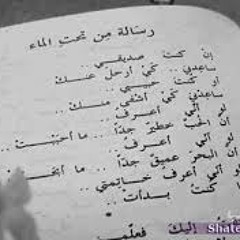 رسالة من تحت الماء
إن كنت صديقي..
ساعدني.. كي أرحل عنك..
أو كنت حبيبي..
ساعدني.. كي أشفى منك..
لو أني أعرف..
أن الحب خطير جداً.. ما أحببت..
لو أني أعرف..
أن البحر عميق جداً.. ما
لو أني أعرف خاتمتي..
ما كنت بدأت..
إليك فعلّم
Shate